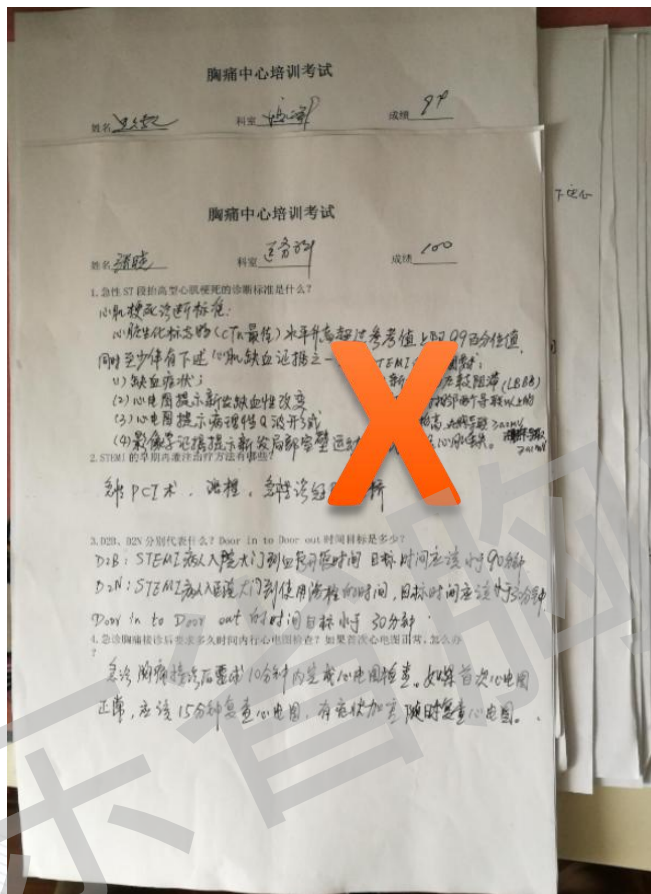 胸痛中心培训考试
姓名 科室 成绩 94
下送心
胸痛中心培训考试
姓名 张晓 科室 医务科 成绩 100
1.急性ST段抬高型心肌梗死的诊断标准是什么?
心肌梗死诊断标准:
心脏生化标志物(cTn最佳)水平升高超过参考值上限99百分位值,
同时至少伴有下述心肌缺血证据之一 STEMI
(1)缺血症状; 新 左束支阻滞(LBBB)
(2)心电图提示新发缺血性改变 相邻两个导联以上的
(3)心电图提示病理性Q波形成 抬高,
(4)影像学证据提示新发局部室壁运动 心肌丢失。
2.STEMI的早期再灌注治疗方法有哪些?
急诊PCI术、溶栓、急诊冠 桥
3.D2B、D2N分别代表什么?Door in to Door out时间目标是多少?
D2B:STEMI病人入医院大门到血管开通时间 目标时间应该小于90分钟
D2N:STEMI病人入医院大门到使用溶栓的时间,目标时间应该小于30分钟
Door in to Door out的时间目标小于30分钟.
4.急诊胸痛接诊后要求多久时间内行心电图检查?如果首次心电图正常,怎么办
?
急诊胸痛接诊后要求10分钟内完成心电图检查。如果首次心电图
正常,应该15分钟复查心电图,有症状加重随时复查心电图。
X